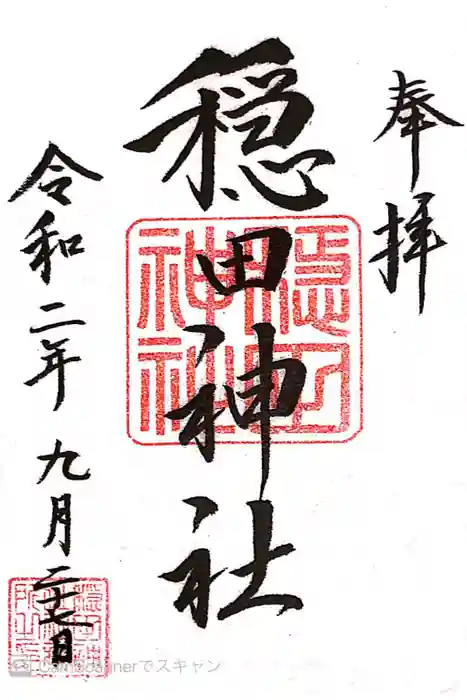 奉拝
穏田神社
令和二年九月二十七日
穏田神社
CamScannerでスキャン